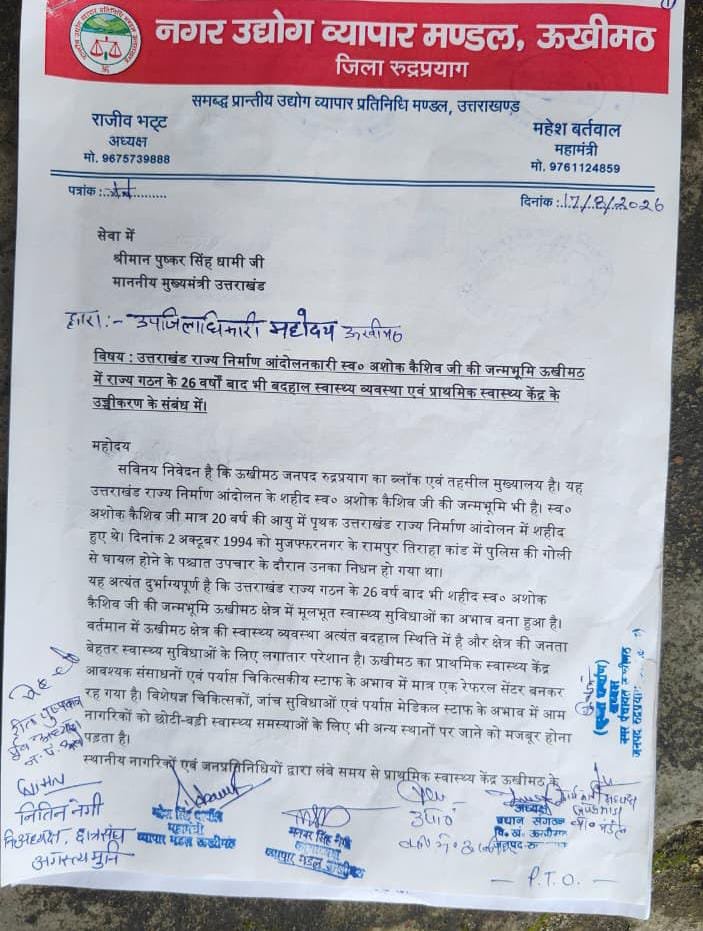 नगर उद्योग व्यापार मण्डल, ऊखीमठ
जिला रुद्रप्रयाग
समबद्ध प्रान्तीय उद्योग व्यापार प्रतिनिधि मण्डल, उत्तराखण्ड
राजीव भट्ट
अध्यक्ष
मो. 9675739888
महेश बर्तवाल
महामंत्री
मो. 9761124859
पत्रांक :
दिनांक : 17/8/2026
सेवा में
श्रीमान पुष्कर सिंह धामी जी
माननीय मुख्यमंत्री उत्तराखंड
द्वारा:- उपजिलाधिकारी महोदय ऊखीमठ
विषय : उत्तराखंड राज्य निर्माण आंदोलनकारी स्व० अशोक कैशिव जी की जन्मभूमि ऊखीमठ
में राज्य गठन के 26 वर्षों बाद भी बदहाल स्वास्थ्य व्यवस्था एवं प्राथमिक स्वास्थ्य केंद्र के
उच्चीकरण के संबंध में।
महोदय
सविनय निवेदन है कि ऊखीमठ जनपद रुद्रप्रयाग का ब्लॉक एवं तहसील मुख्यालय है। यह
उत्तराखंड राज्य निर्माण आंदोलन के शहीद स्व० अशोक कैशिव जी की जन्मभूमि भी है। स्व०
अशोक कैशिव जी मात्र 20 वर्ष की आयु में पृथक उत्तराखंड राज्य निर्माण आंदोलन में शहीद
हुए थे। दिनांक 2 अक्टूबर 1994 को मुजफ्फरनगर के रामपुर तिराहा कांड में पुलिस की गोली
से घायल होने के पश्चात उपचार के दौरान उनका निधन हो गया था।
यह अत्यंत दुर्भाग्यपूर्ण है कि उत्तराखंड राज्य गठन के 26 वर्ष बाद भी शहीद स्व० अशोक
कैशिव जी की जन्मभूमि ऊखीमठ क्षेत्र में मूलभूत स्वास्थ्य सुविधाओं का अभाव बना हुआ है।
वर्तमान में ऊखीमठ क्षेत्र की स्वास्थ्य व्यवस्था अत्यंत बदहाल स्थिति में है और क्षेत्र की जनता
बेहतर स्वास्थ्य सुविधाओं के लिए लगातार परेशान है। ऊखीमठ का प्राथमिक स्वास्थ्य केंद्र
आवश्यक संसाधनों एवं पर्याप्त चिकित्सकीय स्टाफ के अभाव में मात्र एक रेफरल सेंटर बनकर
रह गया है। विशेषज्ञ चिकित्सकों, जांच सुविधाओं एवं पर्याप्त मेडिकल स्टाफ के अभाव में आम
नागरिकों को छोटी-बड़ी स्वास्थ्य समस्याओं के लिए भी अन्य स्थानों पर जाने को मजबूर होना
पड़ता है।
स्थानीय नागरिकों एवं जनप्रतिनिधियों द्वारा लंबे समय से प्राथमिक स्वास्थ्य केंद्र ऊखीमठ के
नितिन नेगी
छात्रसंघ
अगस्त्यमुनि
महामंत्री
व्यापार मंडल ऊखीमठ
व्यापार मंडल ऊखीमठ
अध्यक्ष
प्रधान संगठन
वि. खं. ऊखीमठ
- P.T.O. -